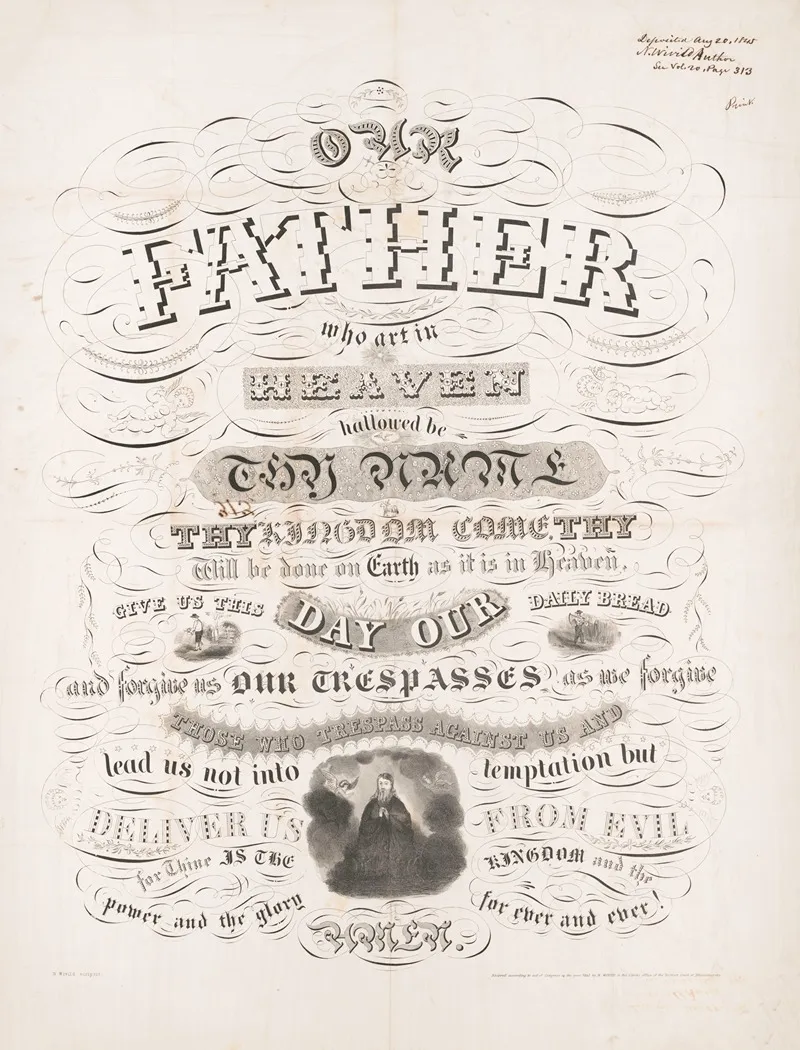 Deposited Aug 20, 1845
Author
See Vol. 20, Page 313
OUR
FATHER
who art in
HEAVEN
hallowed be
THY NAME
313
THY KINGDOM COME. THY
Will be done on Earth as it is in Heaven.
GIVE US THIS DAY OUR DAILY BREAD
and forgive us OUR TRESPASSES as we forgive
THOSE WHO TRESPASS AGAINST US AND
lead us not into temptation but
DELIVER US FROM EVIL
for Thine IS THE KINGDOM and the
power and the glory for ever and ever!
AMEN.